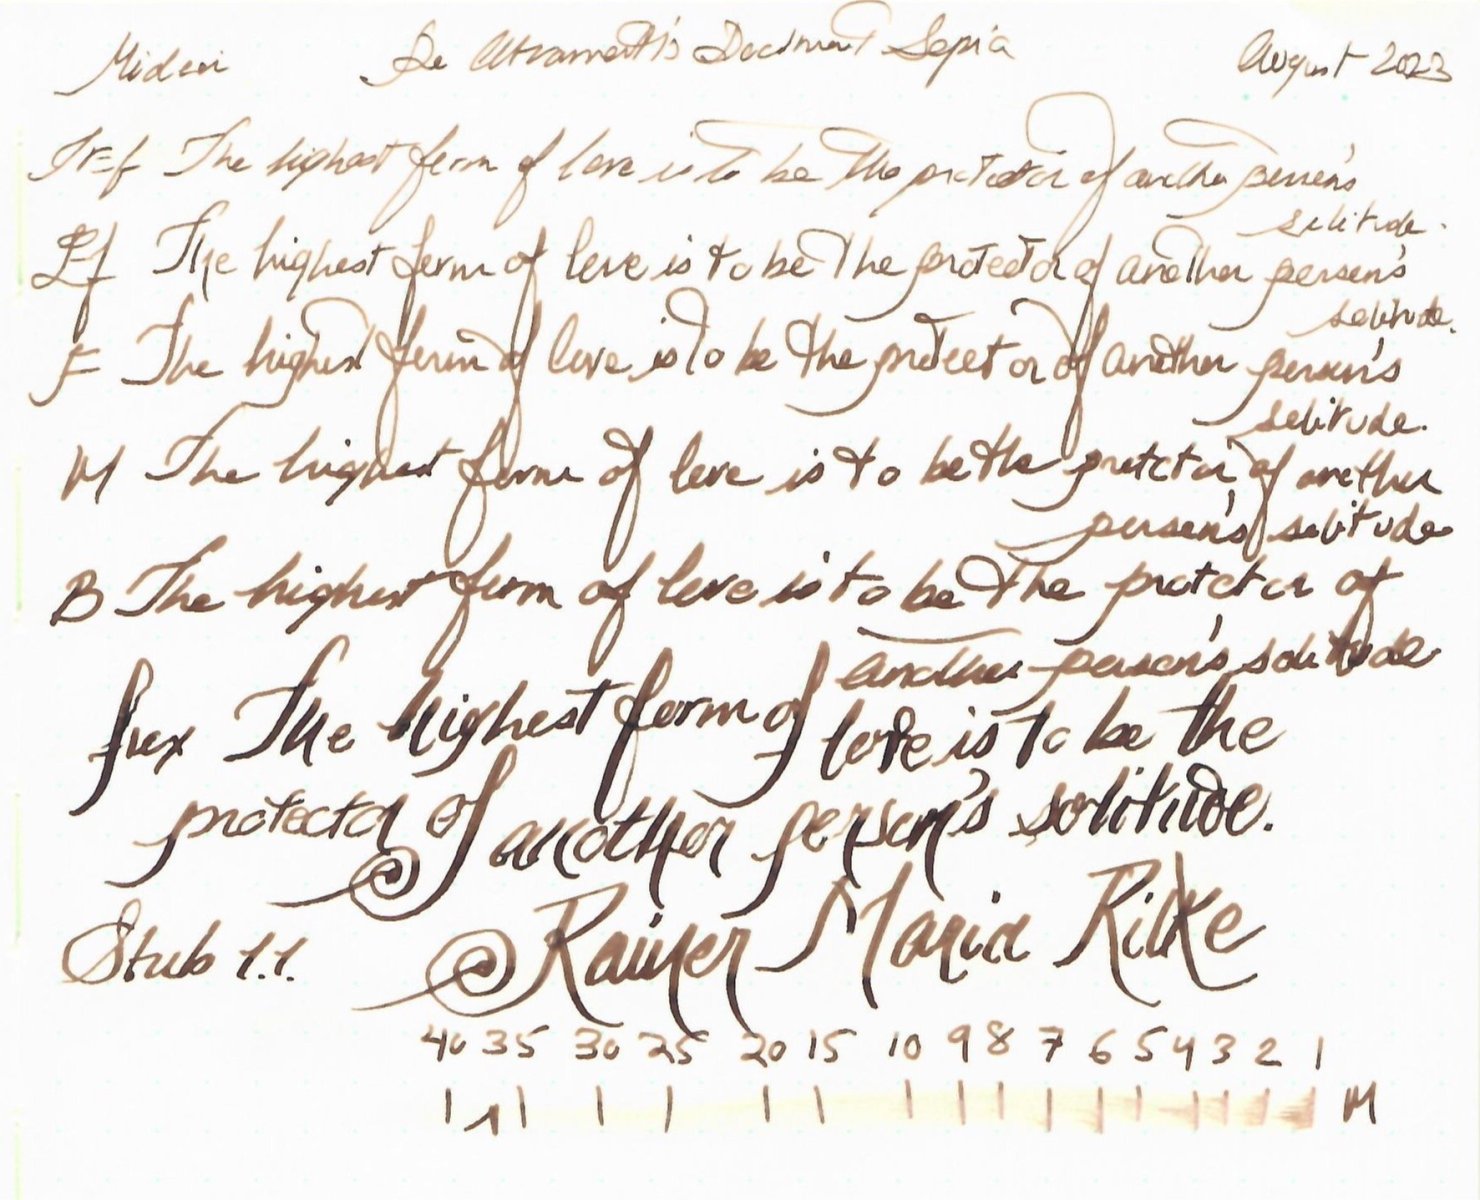 Midori De Atramentis Document Sepia August 2023
The highest form of love is to be the protector of another person's
solitude.
Ef The highest form of love is to be the protector of another person's
solitude.
F The highest form of love is to be the protector of another person's
solitude.
M The highest form of love is to be the protctor of another
person's solitude
B The highest form of love is to be the protctor of
another person's solitude
The highest form of love is to be the
protector of another person's solitude.
Stub 1.1. Rainer Maria Rilke
40 35 30 25 20 15 10 9 8 7 6 5 4 3 2 1
M